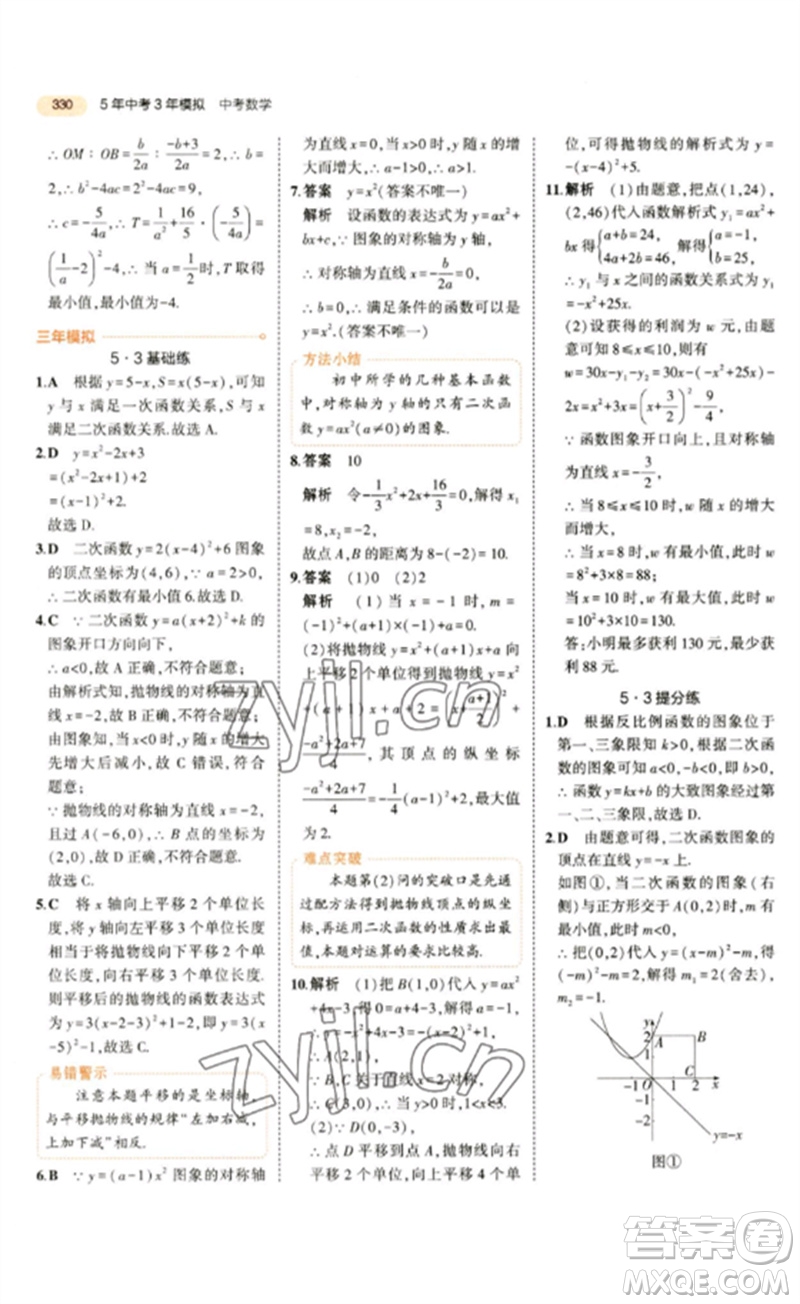 330 5年中考3年模拟 中考数学
∴OM∶OB=b/2a∶(-b+3)/2a=2,∴b=
2,∴b²-4ac=2²-4ac=9,
∴c=-5/4a,∴T=1/a²+16/5·(-5/4a)=
(1/a-2)²-4,∴当a=1/2时,T取得
最小值,最小值为-4.
三年模拟
5·3基础练
1.A 根据y=5-x,S=x(5-x),可知
y与x满足一次函数关系,S与x
满足二次函数关系.故选A.
2.D y=x²-2x+3
=(x²-2x+1)+2
=(x-1)²+2.
故选D.
3.D 二次函数y=2(x-4)²+6图象
的顶点坐标为(4,6),∵a=2>0,
∴二次函数有最小值6.故选D.
4.C ∵二次函数y=a(x+2)²+k的
图象开口方向向下,
∴a<0,故A正确,不符合题意;
由解析式可知,抛物线的对称轴为直
线x=-2,故B正确,不符合题意;
由图象知,当x>0时,y随x的增大
先增后减小,故C错误,符合
题意;
∵抛物线的对称轴为直线x=-2,
且过A(-6,0),∴B点的坐标为
(2,0),故D正确,不符合题意.
故选C.
5.C 将x轴向上平移2个单位长
度,将y轴向左平移3个单位长度
相当于将抛物线向下平移2个单位
长度,向右平移3个单位长度.
则平移后抛物线的函数表达式
为y=3(x-2-3)²+1-2,即y=3(x
-5)²-1.故选C.
易错警示
注意本题平移的是坐标轴,
与平移抛物线的规律“左加右减,
上加下减”相反.
6.B ∵y=(a-1)x²图象的对称轴
为直线x=0,当x>0时,y随x的增
大而增大,∴a-1>0,∴a>1.
7.答案 y=x²(答案不唯一)
解析 设函数的表达式为y=ax²+
bx+c,∵图象的对称轴为y轴,
∴对称轴为直线x=-b/2a=0,
∴b=0,∴满足条件的函数可以
是y=x².(答案不唯一)
方法小结
初中所学的几种基本函数
中,对称轴为y轴的只有二次函
数y=ax²(a≠0)的图象.
8.答案 10
解析 令-1/3x²+2x+16/3=0,解得x₁
=8,x₂=-2,
故点A,B的距离为8-(-2)=10.
9.答案 (1)0 (2)2
解析 (1)当a=-1时,m=
(-1)²+(-1)×(-1)+a=0.
(2)将抛物线y=x²+(a+1)x+a向
上平移2个单位得到抛物线y=x²
+(a+1)x+a+2=(x+(a+1)/2)²+
(-a²+2a+7)/4,其顶点的纵坐标
(-a²+2a+7)/4=-1/4(a-1)²+2,最大值
为2.
难点突破
本题第(2)问的突破口是先通
过配方法得到抛物线顶点的纵坐
标,再运用二次函数的性质求出最
值,本题对运算的要求比较高.
10.解析 (1)把B(1,0)代入y=ax²
+4x-3,得0=a+4-3,解得a=-1,
∴y=-x²+4x-3=-(x-2)²+1,
∴A(2,1),
∵B,C关于直线x=2对称,
∴C(3,0),∴当y>0时,1<x<3.
(2)∵D(0,-3),
∴点D平移到点A,抛物线向右平
移2个单位,向上平移4个单
位,可得抛物线的解析式为y=
-(x-4)²+5.
11.解析 (1)由题意,把点(1,24),
(2,46)代入函数解析式y₁=ax²+
bx得{a+b=24,4a+2b=46,解得{a=-1,b=25,
∴y₁与x之间的函数关系式为y₁
=-x²+25x.
(2)设获得的利润为w元,由题意
得8≤x≤10,则有
w=30x-y₁-2x=30x-(-x²+25x)-
2x=x²+3x=(x+3/2)²-9/4,
∵函数图象开口向上,且对称轴
为直线x=-3/2,
∴当8≤x≤10时,w随x的增大
而增大,
∴当x=8时,w有最小值,此时w=
8²+3×8=88,
当x=10时,w有最大值,此时w
=10²+3×10=130.
答:小明最多获利130元,最少获
利88元.
5·3提分练
1.D 根据反比例函数的图象位于
第一、三象限知k>0,根据二次函
数的图象可知a<0,b>0,
∴函数y=kx+b的大致图象经过第
一、二、三象限,故选D.
2.D 由题意可得,二次函数图象的
顶点在直线y=-x上.
如图①,当二次函数的图象(右
侧)与正方形交于A(0,2)时,m
的值最小.
∴把(0,2)代入y=(x-m)²-m,得
(-m)²-m=2,解得m₁=2(舍去),
m₂=-1.
y
2 A B
1 C
-1 O 1 2 x
-1
-2
y=-x
图①
zyjl.cn
zyjl.cn
答案圈
MXQE.COM